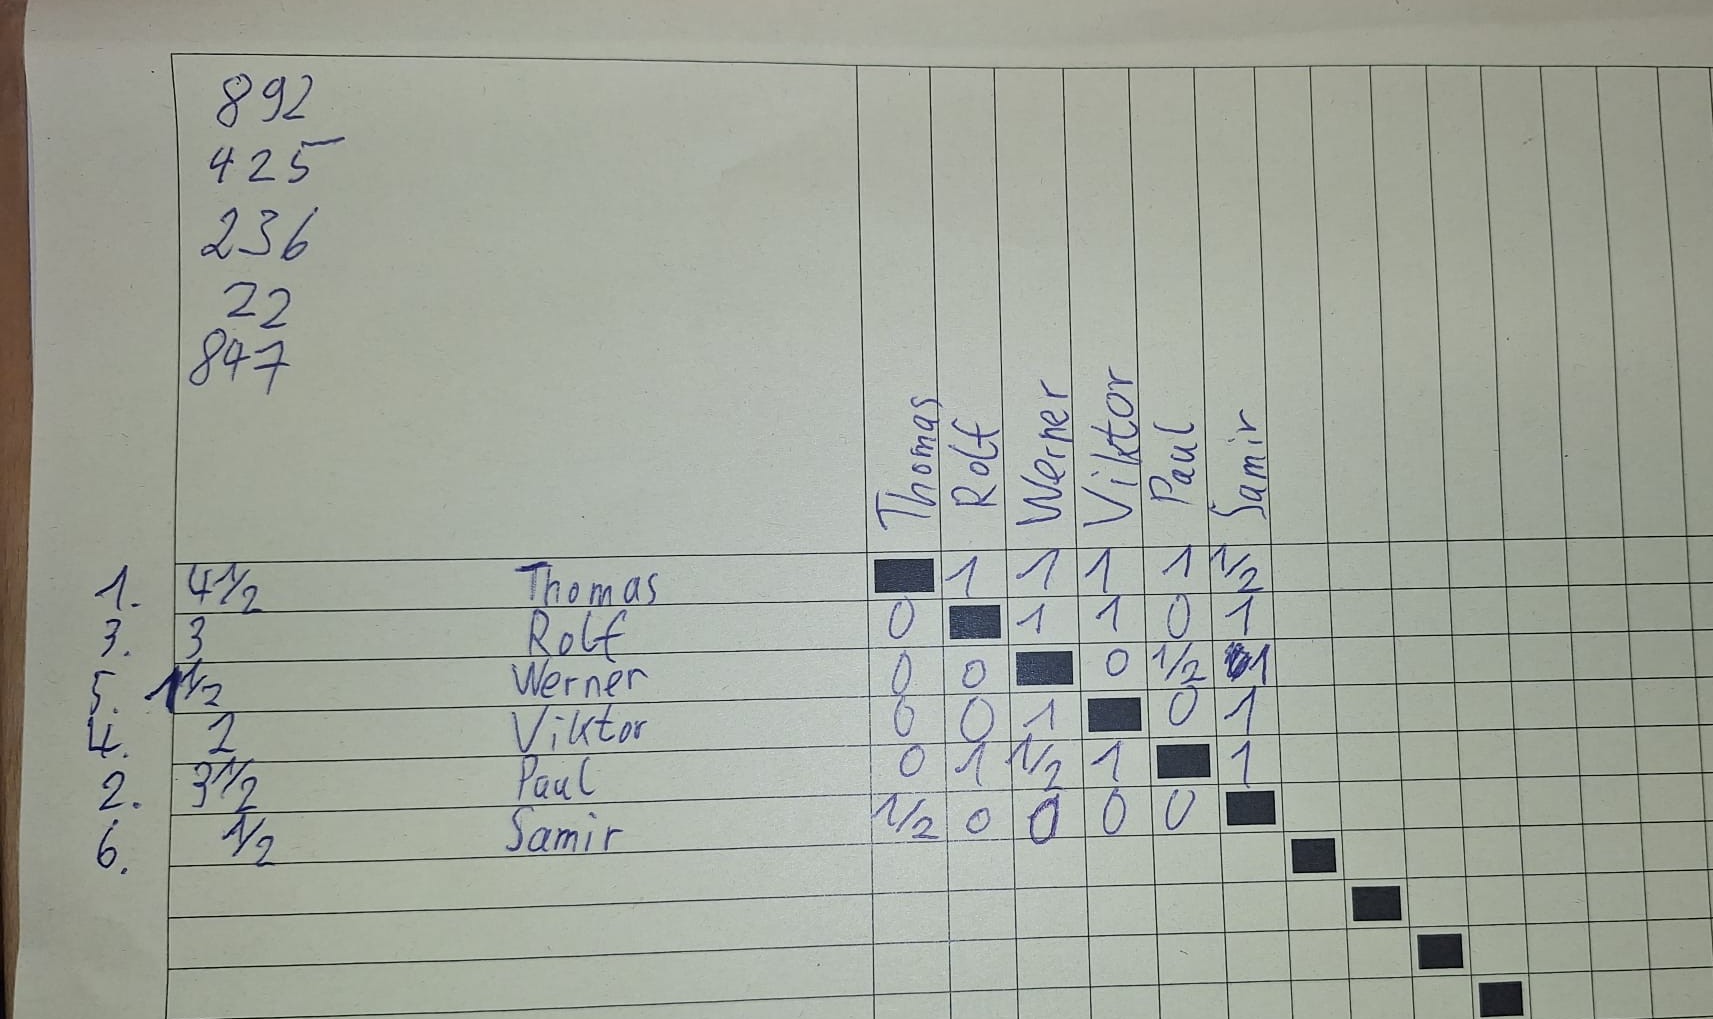 892
425
236
22
847
Thomas Rolf Werner Viktor Paul Samir
1. 4 1/2 Thomas 1 1 1 1 1/2
3. 3 Rolf 0 1 1 0 1
5. 1 1/2 Werner 0 0 0 1/2 1
4. 2 Viktor 0 0 1 0 1
2. 3 1/2 Paul 0 1 1/2 1 1
6. 1/2 Samir 1/2 0 0 0 0